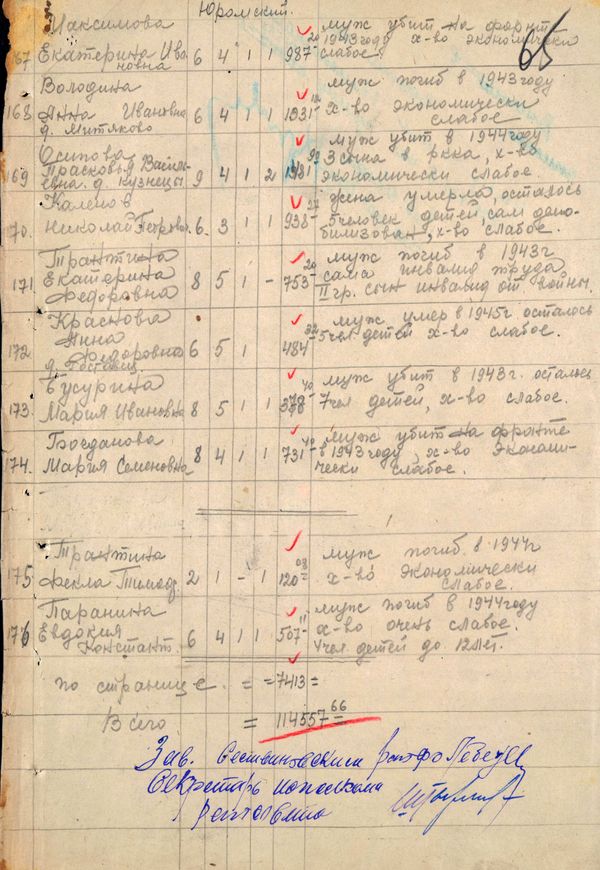 Юромский.
65
Максимова муж убит на фронте
167 Екатерина Ива 6 4 1 1 987-20 1943 году х-во экономически
новна слабое.
Володина муж погиб в 1943 году
168 Анна Ивановна 6 4 1 1 1931- х-во экономически
д. Митяково слабое
Осипова муж убит в 1944 году
169 Прасковья Василь- 9 4 1 2 3 сына в ркка, х-во
евна д. Кузнецы экономически слабое.
Каленов жена умерла, осталось
70. Николай Петрович 6 3 1 1 938-27 5 человек детей, сам демо-
билизован, х-во слабое.
Трантина муж погиб в 1943 г
171 Екатерина 8 5 1 - 753-20 сама инвалид труда
Федоровна II гр. сын инвалид от войны.
Краснова муж умер в 1945 г осталось
172 Анна 6 5 1 484- 5 чел детей х-во слабое.
Федоровна
Бусурина муж убит в 1943 г. осталось
173. Мария Ивановна 8 5 1 1 378-40 7 чел детей, х-во слабое.
Богданова муж убит на фронте
174. Мария Семеновна 8 4 1 1 731- в 1943 году, х-во экономи-
чески слабое.
Трантина муж погиб в 1944 г
175 Фекла Тимоф. 2 1 - 1 120-08 х-во экономически
слабое.
Паранина муж погиб в 1944 году
176 Евдокия 6 4 1 1 507-11 х-во очень слабое.
Констант. 4 чел детей до 12 лет.
по странице = =7413=
Всего = 114557-66
Зав.
Секретарь исполкома